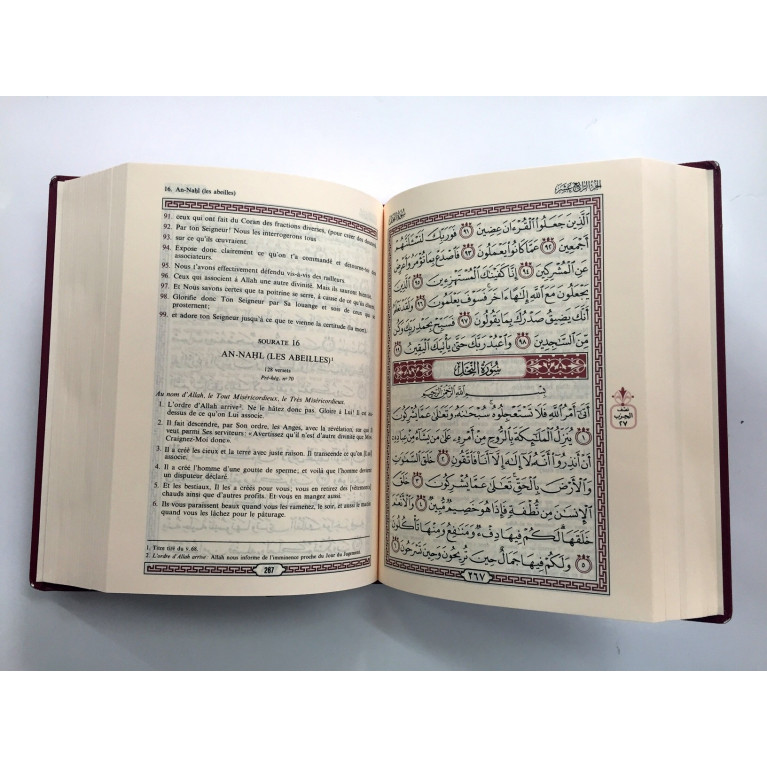 16. An-Naḥl (les abeilles)
91. ceux qui ont fait du Coran des fractions diverses, (pour créer des
92. Par ton Seigneur! Nous les interrogerons tous
93. sur ce qu'ils œuvraient.
94. Expose donc clairement ce qu'on t'a commandé et détourne-toi
associateurs.
95. Nous t'avons effectivement défendu vis-à-vis des railleurs.
96. Ceux qui associent à Allah une autre divinité. Mais ils sauront
97. Et Nous savons certes que ta poitrine se serre, à cause de ce qu'ils
98. Glorifie donc Ton Seigneur par Sa louange et sois de ceux qui
prosternent;
99. et adore ton Seigneur jusqu'à ce que te vienne la certitude (la mort).
SOURATE 16
AN-NAḤL (LES ABEILLES)¹
128 versets
Pré-hég. n° 70
Au nom d'Allah, le Tout Miséricordieux, le Très Miséricordieux.
1. L'ordre d'Allah arrive². Ne le hâtez donc pas. Gloire à Lui! Il est
dessus de ce qu'on Lui associe.
2. Il fait descendre, par Son ordre, les Anges, avec la révélation, sur qui Il
veut parmi Ses serviteurs: «Avertissez qu'il n'est d'autre divinité que Moi.
Craignez-Moi donc».
3. Il a créé les cieux et la terre avec juste raison. Il transcende ce qu'on [Lui]
associe.
4. Il a créé l'homme d'une goutte de sperme; et voilà que l'homme devient
un disputeur déclaré.
5. Et les bestiaux, Il les a créés pour vous; vous en retirez des [vêtements]
chauds ainsi que d'autres profits. Et vous en mangez aussi.
6. Ils vous paraissent beaux quand vous les ramenez, le soir, et aussi le matin
quand vous les lâchez pour le pâturage.
1. Titre tiré du v.68.
2. L'ordre d'Allah arrive: Allah nous informe de l'imminence proche du Jour du Jugement.
267
الجزء الرابع عشر
الَّذِينَ جَعَلُوا الْقُرْءَانَ عِضِينَ ٩١ فَوَرَبِّكَ لَنَسْـَٔلَنَّهُمْ
أَجْمَعِينَ ٩٢ عَمَّا كَانُوا يَعْمَلُونَ ٩٣ فَاصْدَعْ بِمَا تُؤْمَرُ وَأَعْرِضْ
عَنِ الْمُشْرِكِينَ ٩٤ إِنَّا كَفَيْنَٰكَ الْمُسْتَهْزِءِينَ ٩٥ الَّذِينَ
يَجْعَلُونَ مَعَ اللَّهِ إِلَٰهًا ءَاخَرَ فَسَوْفَ يَعْلَمُونَ ٩٦ وَلَقَدْ نَعْلَمُ
أَنَّكَ يَضِيقُ صَدْرُكَ بِمَا يَقُولُونَ ٩٧ فَسَبِّحْ بِحَمْدِ رَبِّكَ وَكُن
مِّنَ السَّٰجِدِينَ ٩٨ وَاعْبُدْ رَبَّكَ حَتَّىٰ يَأْتِيَكَ الْيَقِينُ ٩٩
سُورَةُ النَّحْلِ
بِسْمِ اللَّهِ الرَّحْمَٰنِ الرَّحِيمِ
أَتَىٰ أَمْرُ اللَّهِ فَلَا تَسْتَعْجِلُوهُ سُبْحَٰنَهُ وَتَعَٰلَىٰ عَمَّا يُشْرِكُونَ
١ يُنَزِّلُ الْمَلَٰٓئِكَةَ بِالرُّوحِ مِنْ أَمْرِهِ عَلَىٰ مَن يَشَآءُ مِنْ عِبَادِهِ
أَنْ أَنذِرُوا أَنَّهُ لَآ إِلَٰهَ إِلَّآ أَنَا فَاتَّقُونِ ٢ خَلَقَ السَّمَٰوَٰتِ
وَالْأَرْضَ بِالْحَقِّ تَعَٰلَىٰ عَمَّا يُشْرِكُونَ ٣ خَلَقَ
الْإِنسَٰنَ مِن نُّطْفَةٍ فَإِذَا هُوَ خَصِيمٌ مُّبِينٌ ٤ وَالْأَنْعَٰمَ
خَلَقَهَا لَكُمْ فِيهَا دِفْءٌ وَمَنَٰفِعُ وَمِنْهَا تَأْكُلُونَ
٥ وَلَكُمْ فِيهَا جَمَالٌ حِينَ تُرِيحُونَ وَحِينَ تَسْرَحُونَ ٦
نصف
الحزب
٢٧
٢٦٧